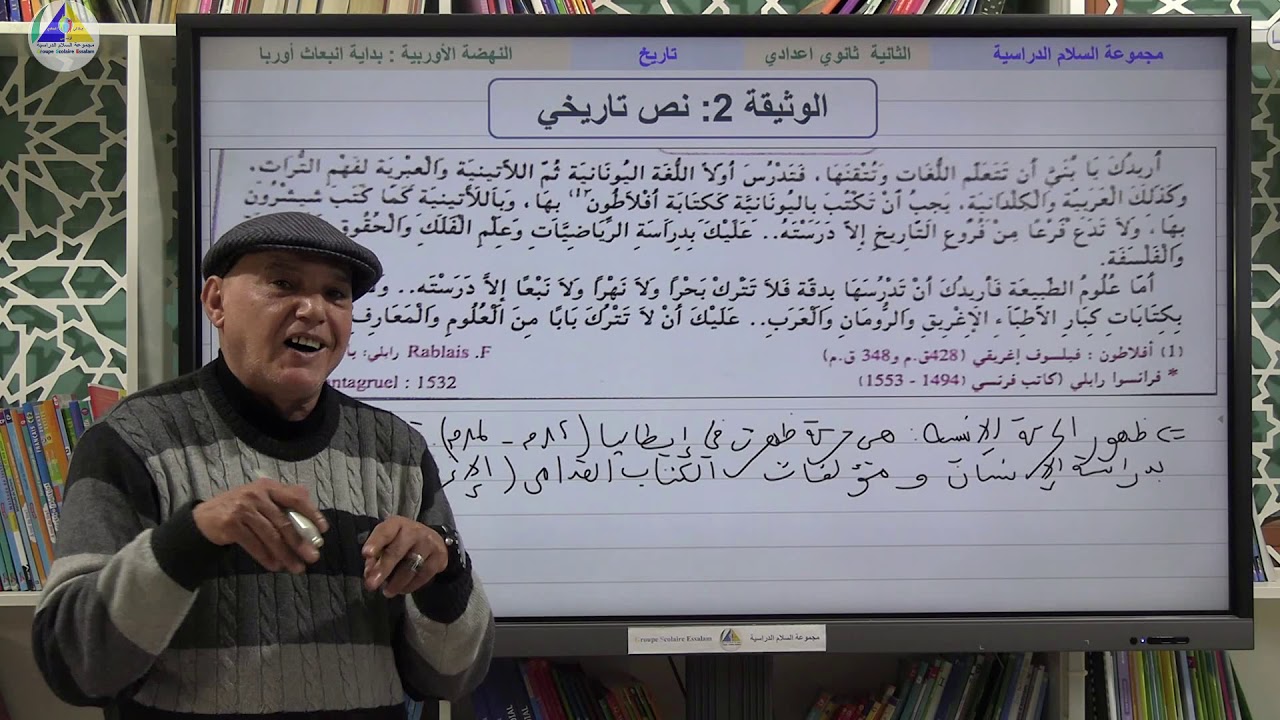 مجموعة السلام الدراسية
Groupe Scolaire Essalam
مجموعة السلام الدراسية الثانية ثانوي اعدادي تاريخ النهضة الأوربية : بداية انبعاث أوربا
الوثيقة 2: نص تاريخي
أُرِيدُكَ يَا بُنَيَّ أَن تَتَعَلَّم اللُّغَات وَتُتْقِنَهَا، فَتَدْرُسَ أَولاً اللُّغَة اليُونَانِيَة ثُمَّ اللاَّتِينِيَة وَالْعِبْرِيَة لفَهْمِ التُّرَاث.
وَكَذَلِكَ الْعَرَبِيَة وَالكِلْدَانِيَة. يَجِبُ أَنْ تَكْتُبَ بِاليُونَانيَّة كَكِتَابَة أَفْلاَطُون (1) بِهَا، وَبِاللاَّتِينِيَة كَمَا كَتَبَ شِيشْرُون
بِهَا، وَلاَ تَدَع فَرْعًا مِنْ فُرُوعِ التَّارِيخِ إلاَّ دَرَسْتَهُ.. عَلَيْكَ بِدِرَاسَةِ الرِّيَاضِيَّاتِ وَعِلْمِ الْفَلَكِ وَالْحُقُوقِ
وَالْفَلْسَفَة.
أَمَّا عُلُومُ الطَّبِيعَة فَأُرِيدُكَ أَنْ تَدْرُسَهَا بِدِقَّة فَلاَ تَتْرُكْ بَحْرًا وَلاَ نَهْرًا وَلاَ نَبْعًا إلاَّ دَرَسْتَه..
بِكِتَابَاتِ كِبَارِ الأَطِبَّاءِ الإِغْرِيقِ وَالرُّومَانِ وَالْعَرَبِ.. عَلَيْكَ أَنْ لاَ تَتْرُكَ بَابًا مِنَ الْعُلُومِ وَالْمَعَارِفِ
(1) أفلاطون : فيلسوف إغريقي (428ق.م و348 ق.م) Rablais .F رابلي:
* فرانسوا رابلي (كاتب فرنسي (1494 - 1553) ntagruel : 1532
=> ظهور الحركة الإنسية : هي حركة ظهرت في إيطاليا
بدراسة الإنسان و مؤلفات الكتاب القدامى
Groupe Scolaire Essalam مجموعة السلام الدراسية